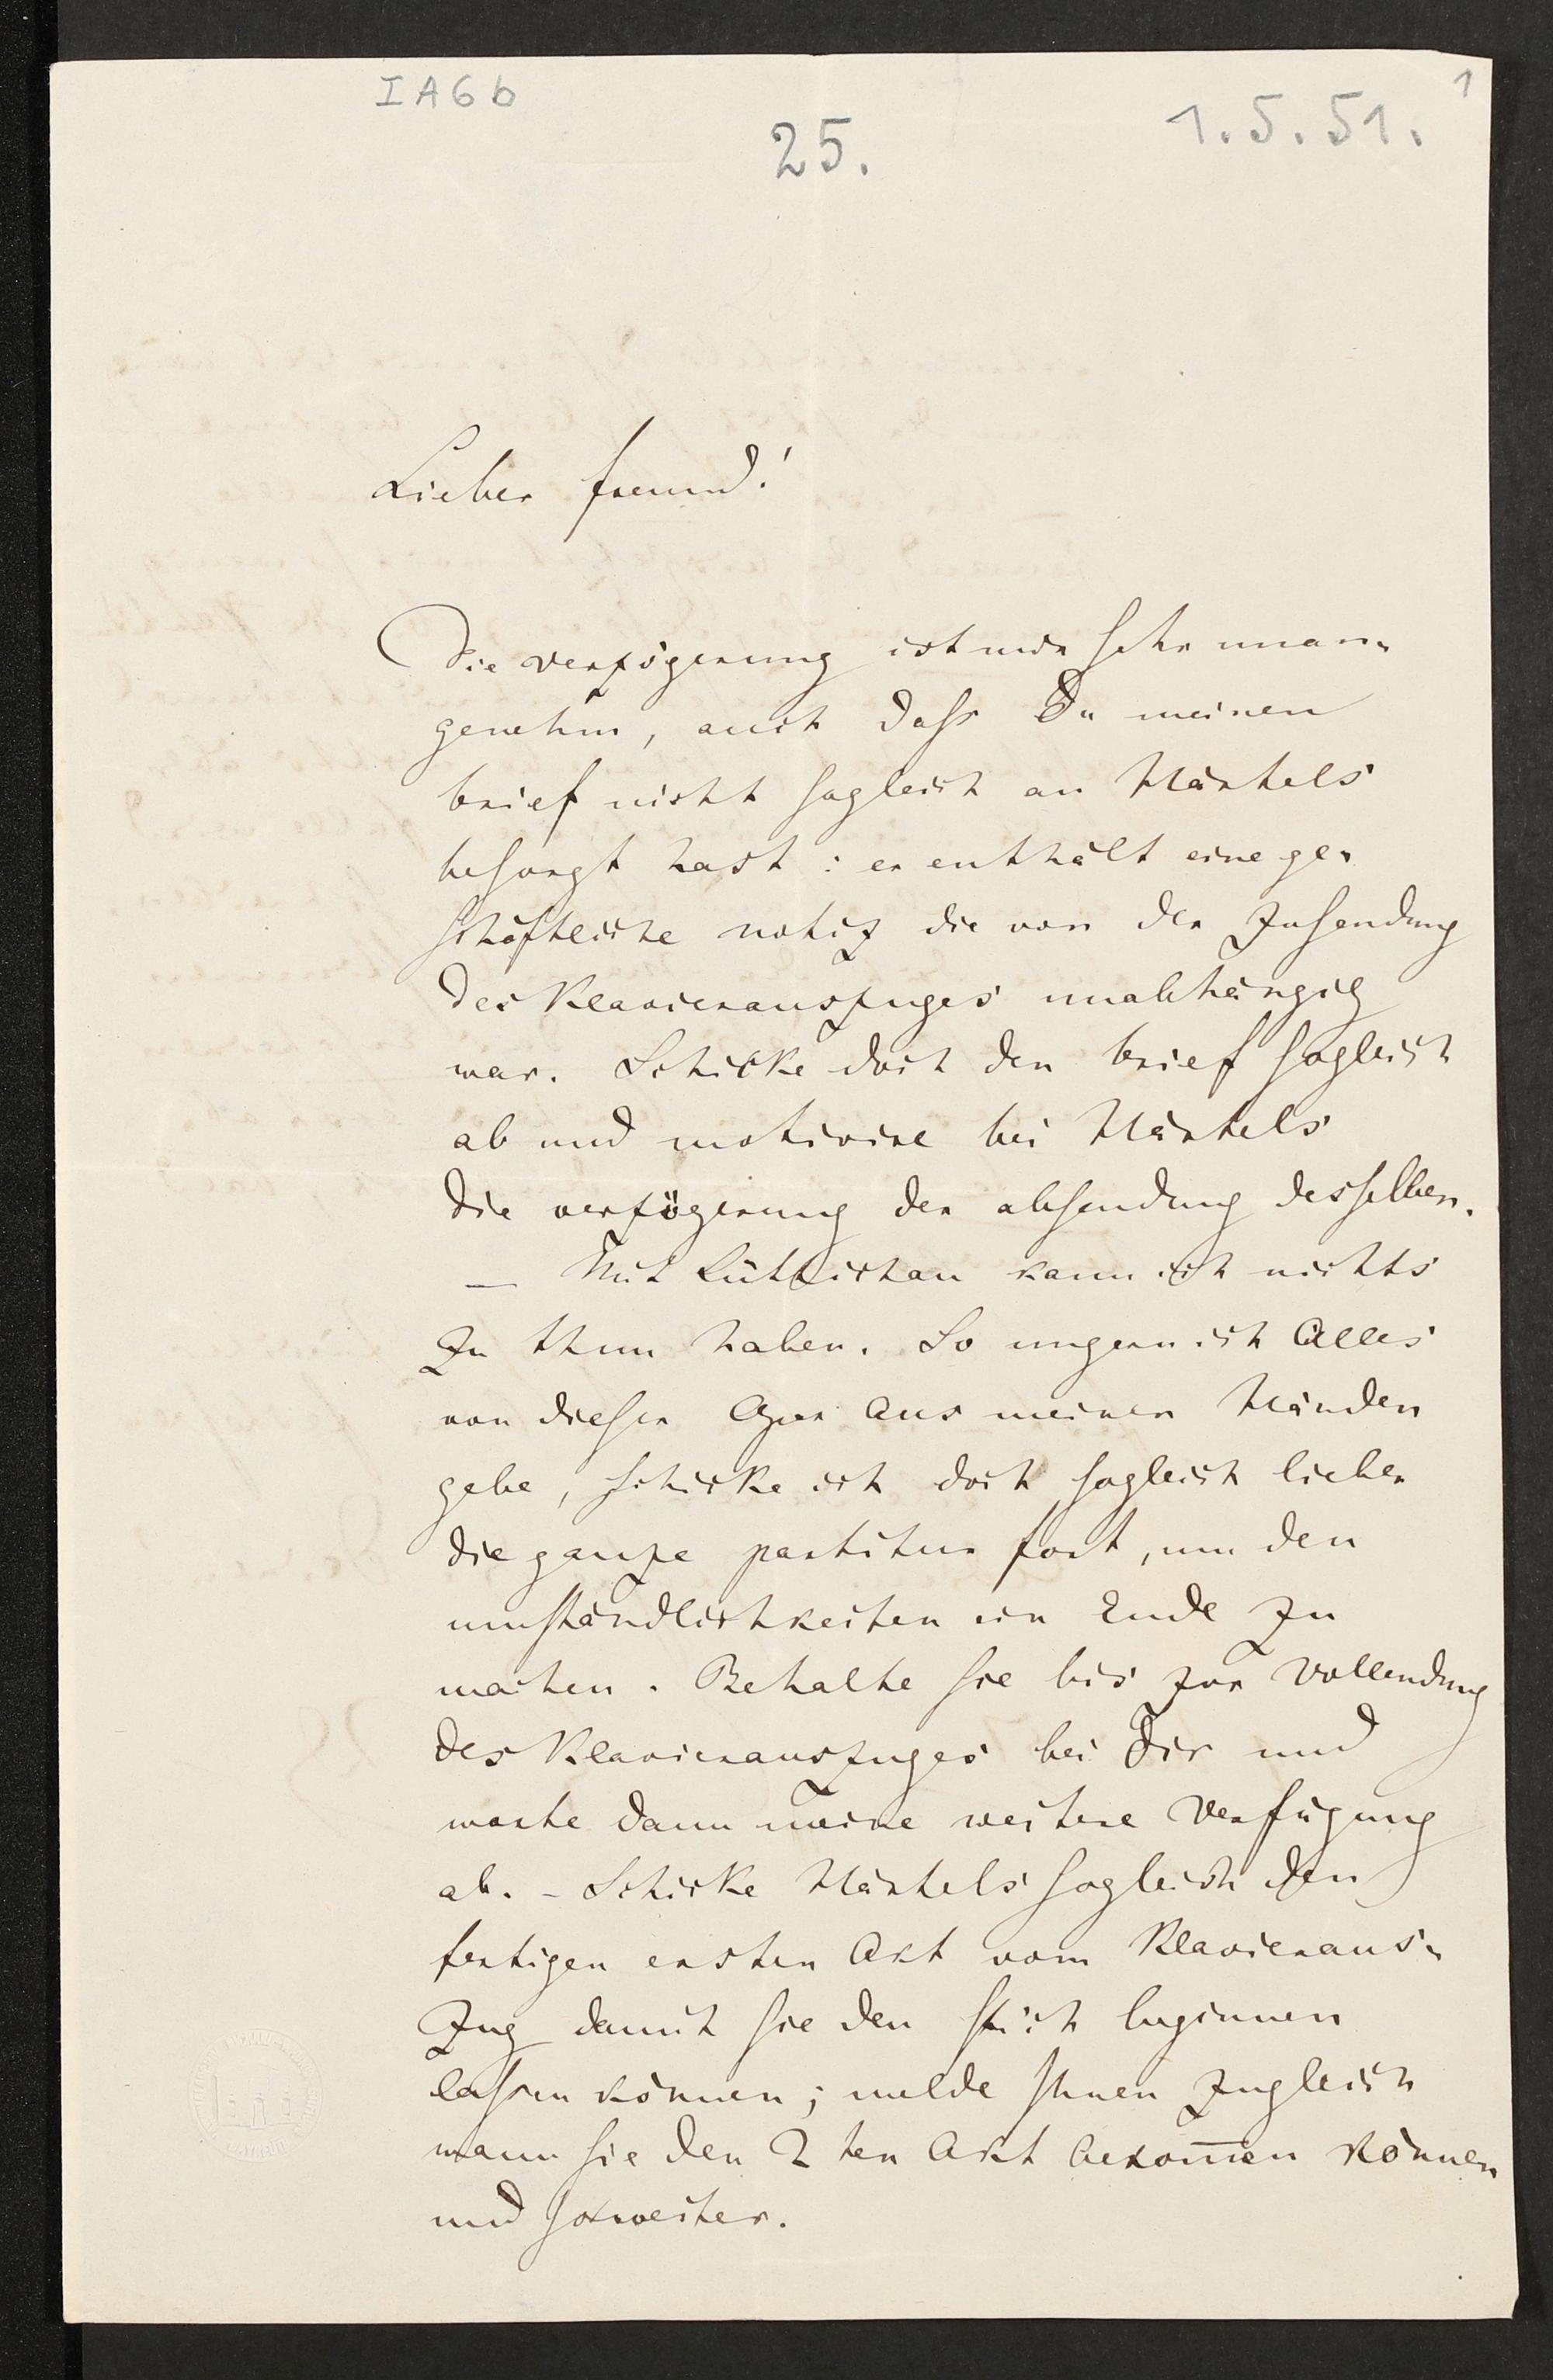 IA6b
25.
1.5.51.
1
Lieber freund!
Die verzögerung ist mir sehr unan-
genehm, auch daß Du meinen
brief nicht sogleich an Härtels
besorgt hast: er enthält eine ge-
schäftliche notiz die von der zusendung
des Klavierauszuges unabhängig
war. Schicke doch den brief sogleich
ab und motivire bei Härtels
die verzögerung der absendung desselben.
— Mit Lüttichau kann ich nichts
zu thun haben. So ungern ich Alles
von dieser Oper aus meinen Händen
gebe, schicke ich doch sogleich lieber
die ganze partitur fort, um den
umständlichkeiten ein Ende zu
machen. Behalte sie bis zur Vollendung
des Klavierauszuges bei Dir und
warte dann meine weitere Verfügung
ab. – Schicke Härtels sogleich den
fertigen ersten Akt vom Klavieraus-
zug damit sie den stich beginnen
lassen können; melde Ihnen zugleich
wann sie den 2ten Akt bekom̅en können
und soweiter.